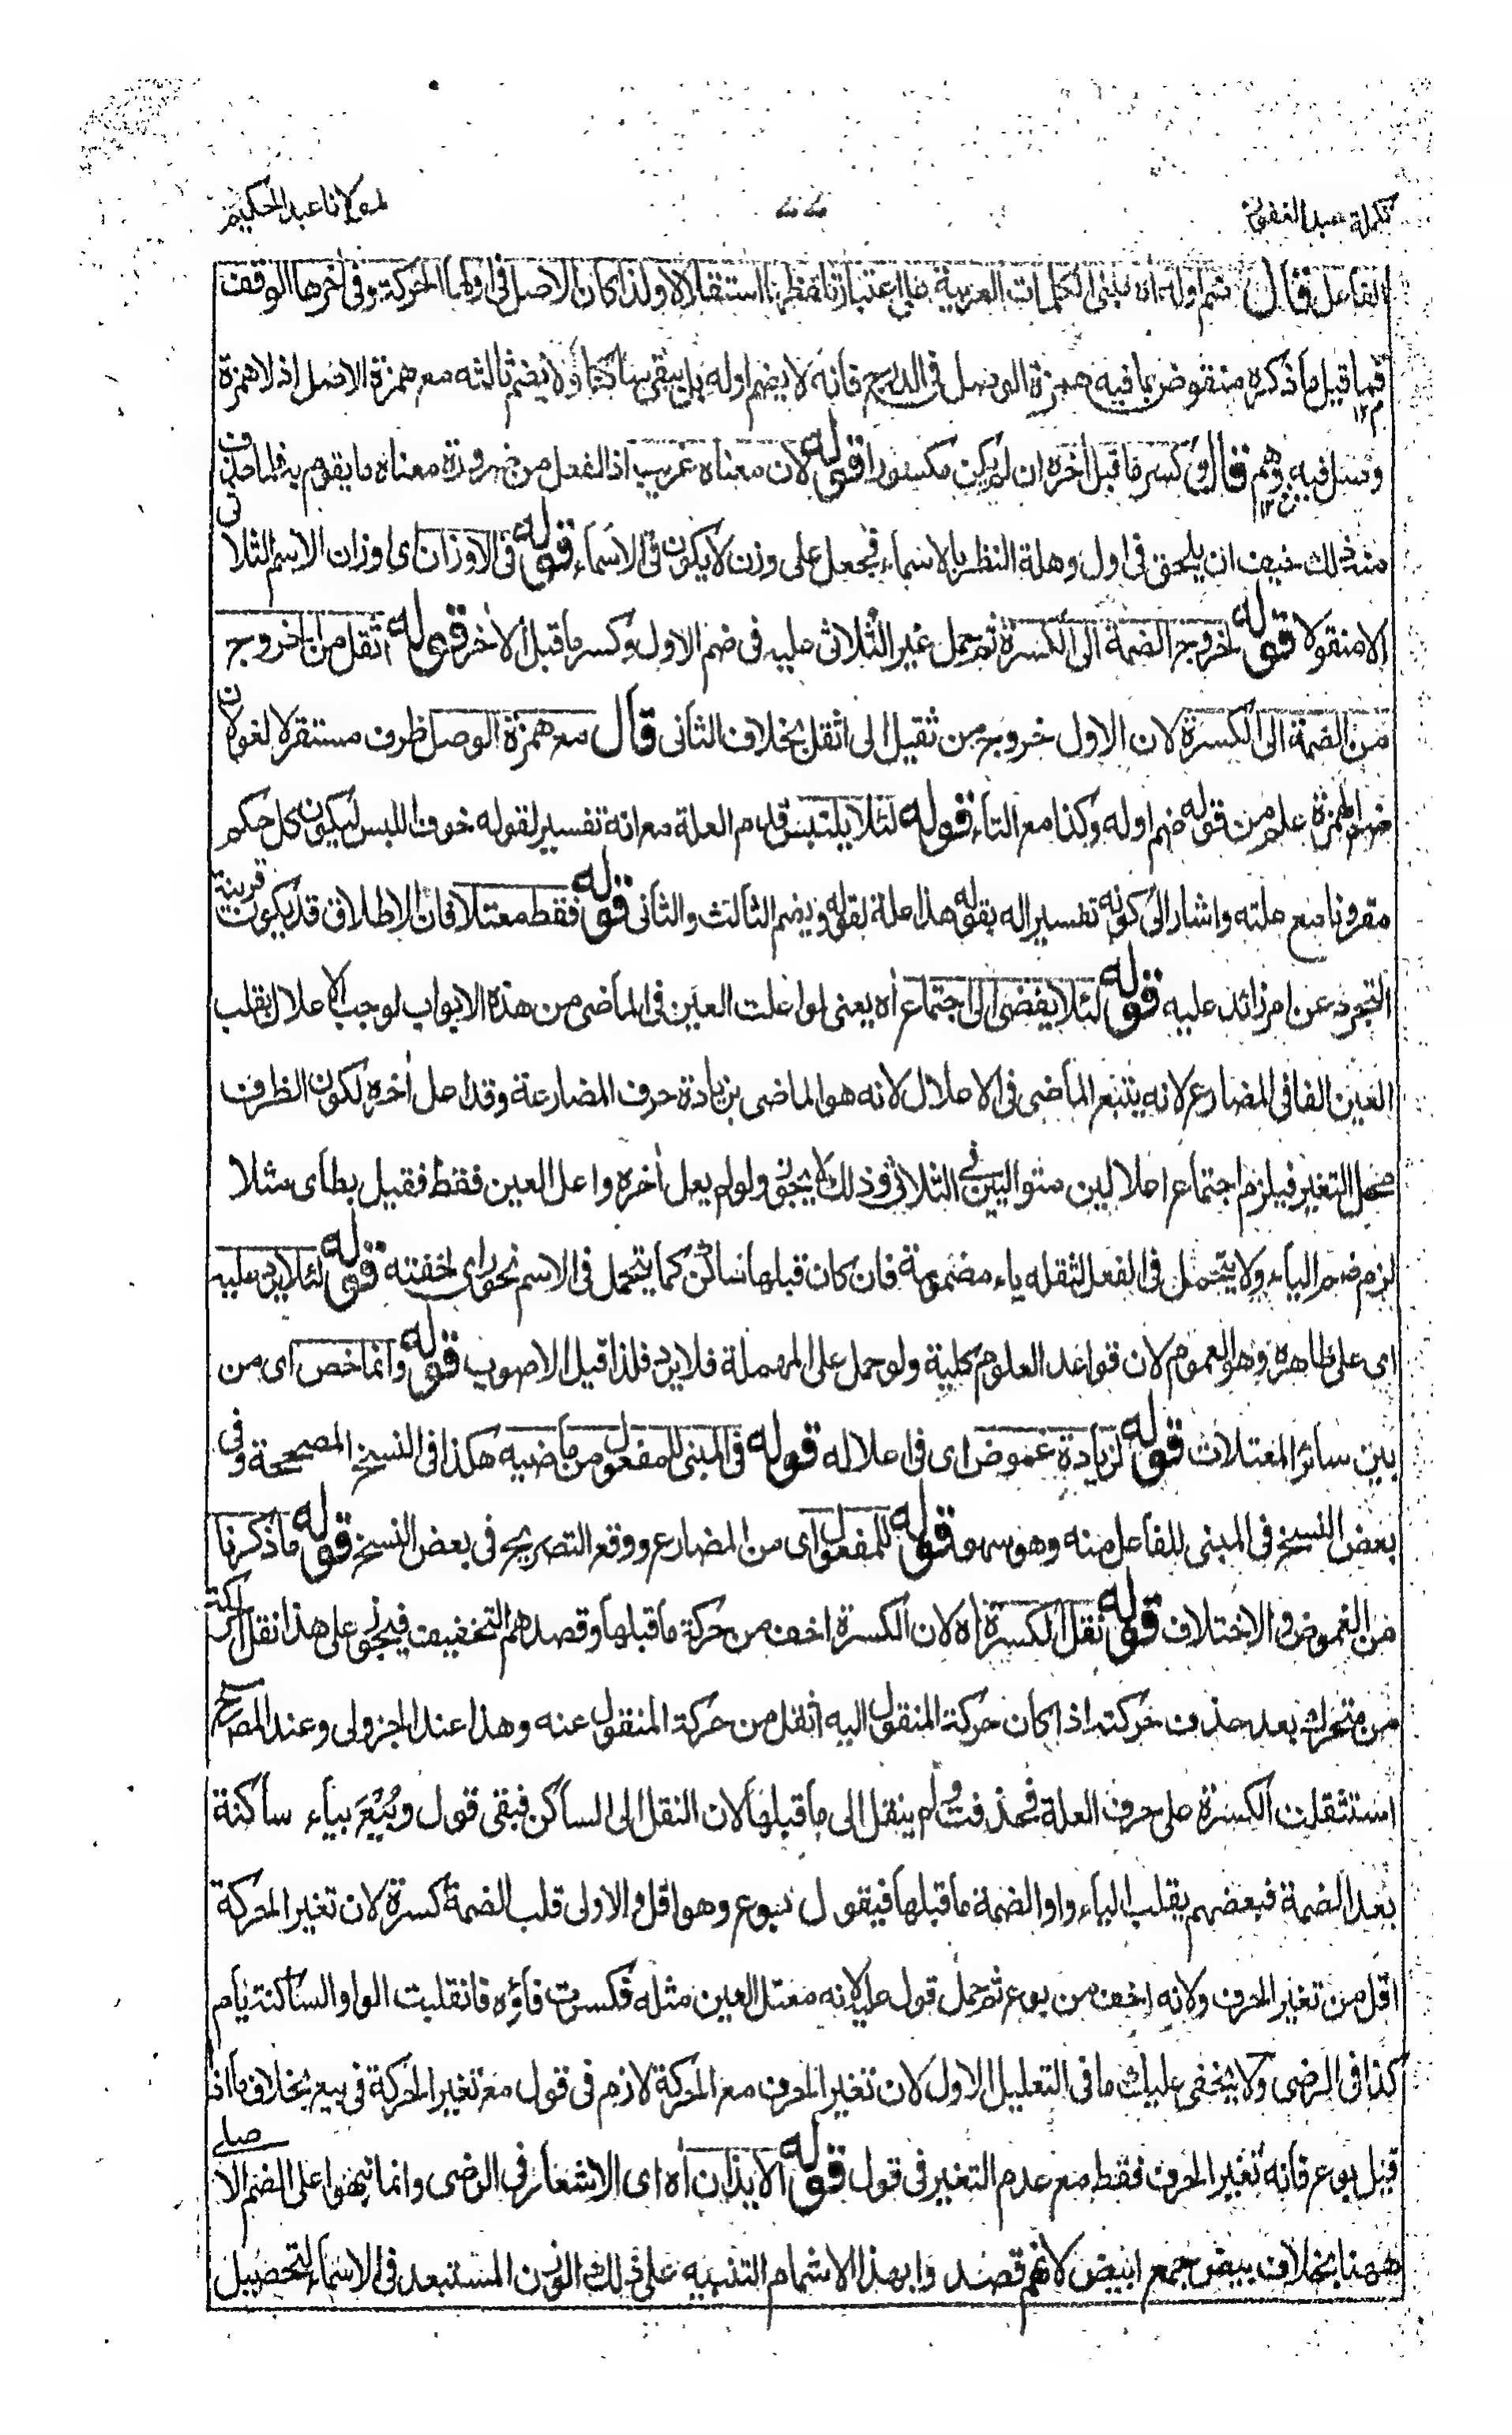 تكملة عبد الغفور
لمولانا عبد الحكيم
الفاعل قال ضم اوله اه مبنى الكلمات العربية على اعتبار تلفظها استقلالا ولذا كان الاصل فى اولها الحركة وفى اخرها الوقف
فما قيل ما ذكره منقوض بما فيه همزة الوصل فى الدرج فانه لا يضم اوله بل يبقى ساكنا ولا يضم ثالثه مع همزة الاصل اذ لا همزة
وصل فيه وهم قال وكسر ما قبل اخره ان لم يكن مكسورا قوله لان معناه غريب اذ الفعل من ضرورة معناه ما يقوم به فلما حذف
منه ذلك خيف ان يلحق فى اول وهلة النظر بالاسماء فجعل على وزن لا يكون فى الاسماء قوله فى الاوزان اى اوزان الاسم الثلاثى
الا منقولا قوله لخروج الضمة الى الكسرة ثم حمل غير الثلاثى عليه فى ضم الاول وكسر ما قبل الاخر قوله اثقل من الخروج
من الضمة الى الكسرة لان الاول خروج من ثقيل الى اثقل بخلاف الثانى قال مع همزة الوصل ظرف مستقر لا لغو لان
ضم الهمزة علم من قوله ضم اوله وكذا مع التاء قوله لئلا يلتبس قدم العلة مع انه تفسير لقوله خوف اللبس ليكون كل حكم
مقرونا مع علته واشار الى كونه تفسيرا له بقوله هذا علة لقوله ويضم الثالث والثانى قوله فقط معتلا فان الاطلاق قد يكون قرينة
التجرد عن امر زائد عليه قوله لئلا يفضى الى اجتماع اه يعنى لو اعلت العين فى الماضى من هذه الابواب لوجب الاعلال بقلب
العين الفا فى المضارع لانه يتبع الماضى فى الاعلال لانه هو الماضى بزيادة حرف المضارعة وقد اعل اخره لكون الظرف
محل التغير فيلزم اجتماع اعلالين متواليين فى الثلاثى وذلك لا يجوز ولو لم يعل اخره واعل العين فقط فقيل يطاى مثلا
لزم ضم الياء ولا يتحمل فى الفعل لثقله ياء مضمومة فان كان قبلها ساكن كما يتحمل فى الاسم نحو راى لخفته قوله لئلا يرد عليه
اى على ظاهره وهو العموم لان قواعد العلوم كلية ولو حمل على المهملة فلا يرد فلذا قيل الاصوب قوله وانما خص اى من
بين سائر المعتلات قوله لزيادة غموض اى فى اعلاله قوله فى المبنى للمفعول من ماضيه هكذا فى النسخ المصححة وفى
بعض النسخ فى المبنى للفاعل منه وهو سهو قوله للمفعول اى من المضارع ووقع التصريح فى بعض النسخ قوله ما ذكرنا
من الغموض والاختلاف قوله نقل الكسرة اه لان الكسرة اخف من حركة ما قبلها وقصدهم التخفيف فيجوز على هذا نقل الحركة
من متحرك بعد حذف حركته اذا كان حركة المنقول اليه اثقل من حركة المنقول عنه وهذا عند الجزولى وعند المصرح
استثقلت الكسرة على حرف العلة فحذفت ولم ينقل الى ما قبلها لان النقل الى الساكن فبقى قول وبُيْعَ بياء ساكنة
بعد الضمة فبعضهم يقلب الياء واوا لضمة ما قبلها فيقول بوع وهو اقل والاولى قلب الضمة كسرة لان تغير الحركة
اقل من تغير الحرف ولانه اخف من بوع ثم حمل قول عليه لانه معتل العين مثله فكسرت فاؤه فانقلبت الواو الساكنة ياء
كذا فى الرضى ولا يخفى عليك ما فى التعليل الاول لان تغير الحرف مع الحركة لازم فى قول مع تغير الحركة فى بيع بخلاف ما اذا
قيل بوع فانه تغير الحرف فقط مع عدم التغير فى قول قوله الايذان اه اى الاشعار فى الرضى وانما نبهوا على الضم الاصلى
ههنا بخلاف بيض جمع ابيض لانهم قصدوا بهذا الاشمام التنبيه على ذلك الوزن المستبعد فى الاسماء لتحصيل